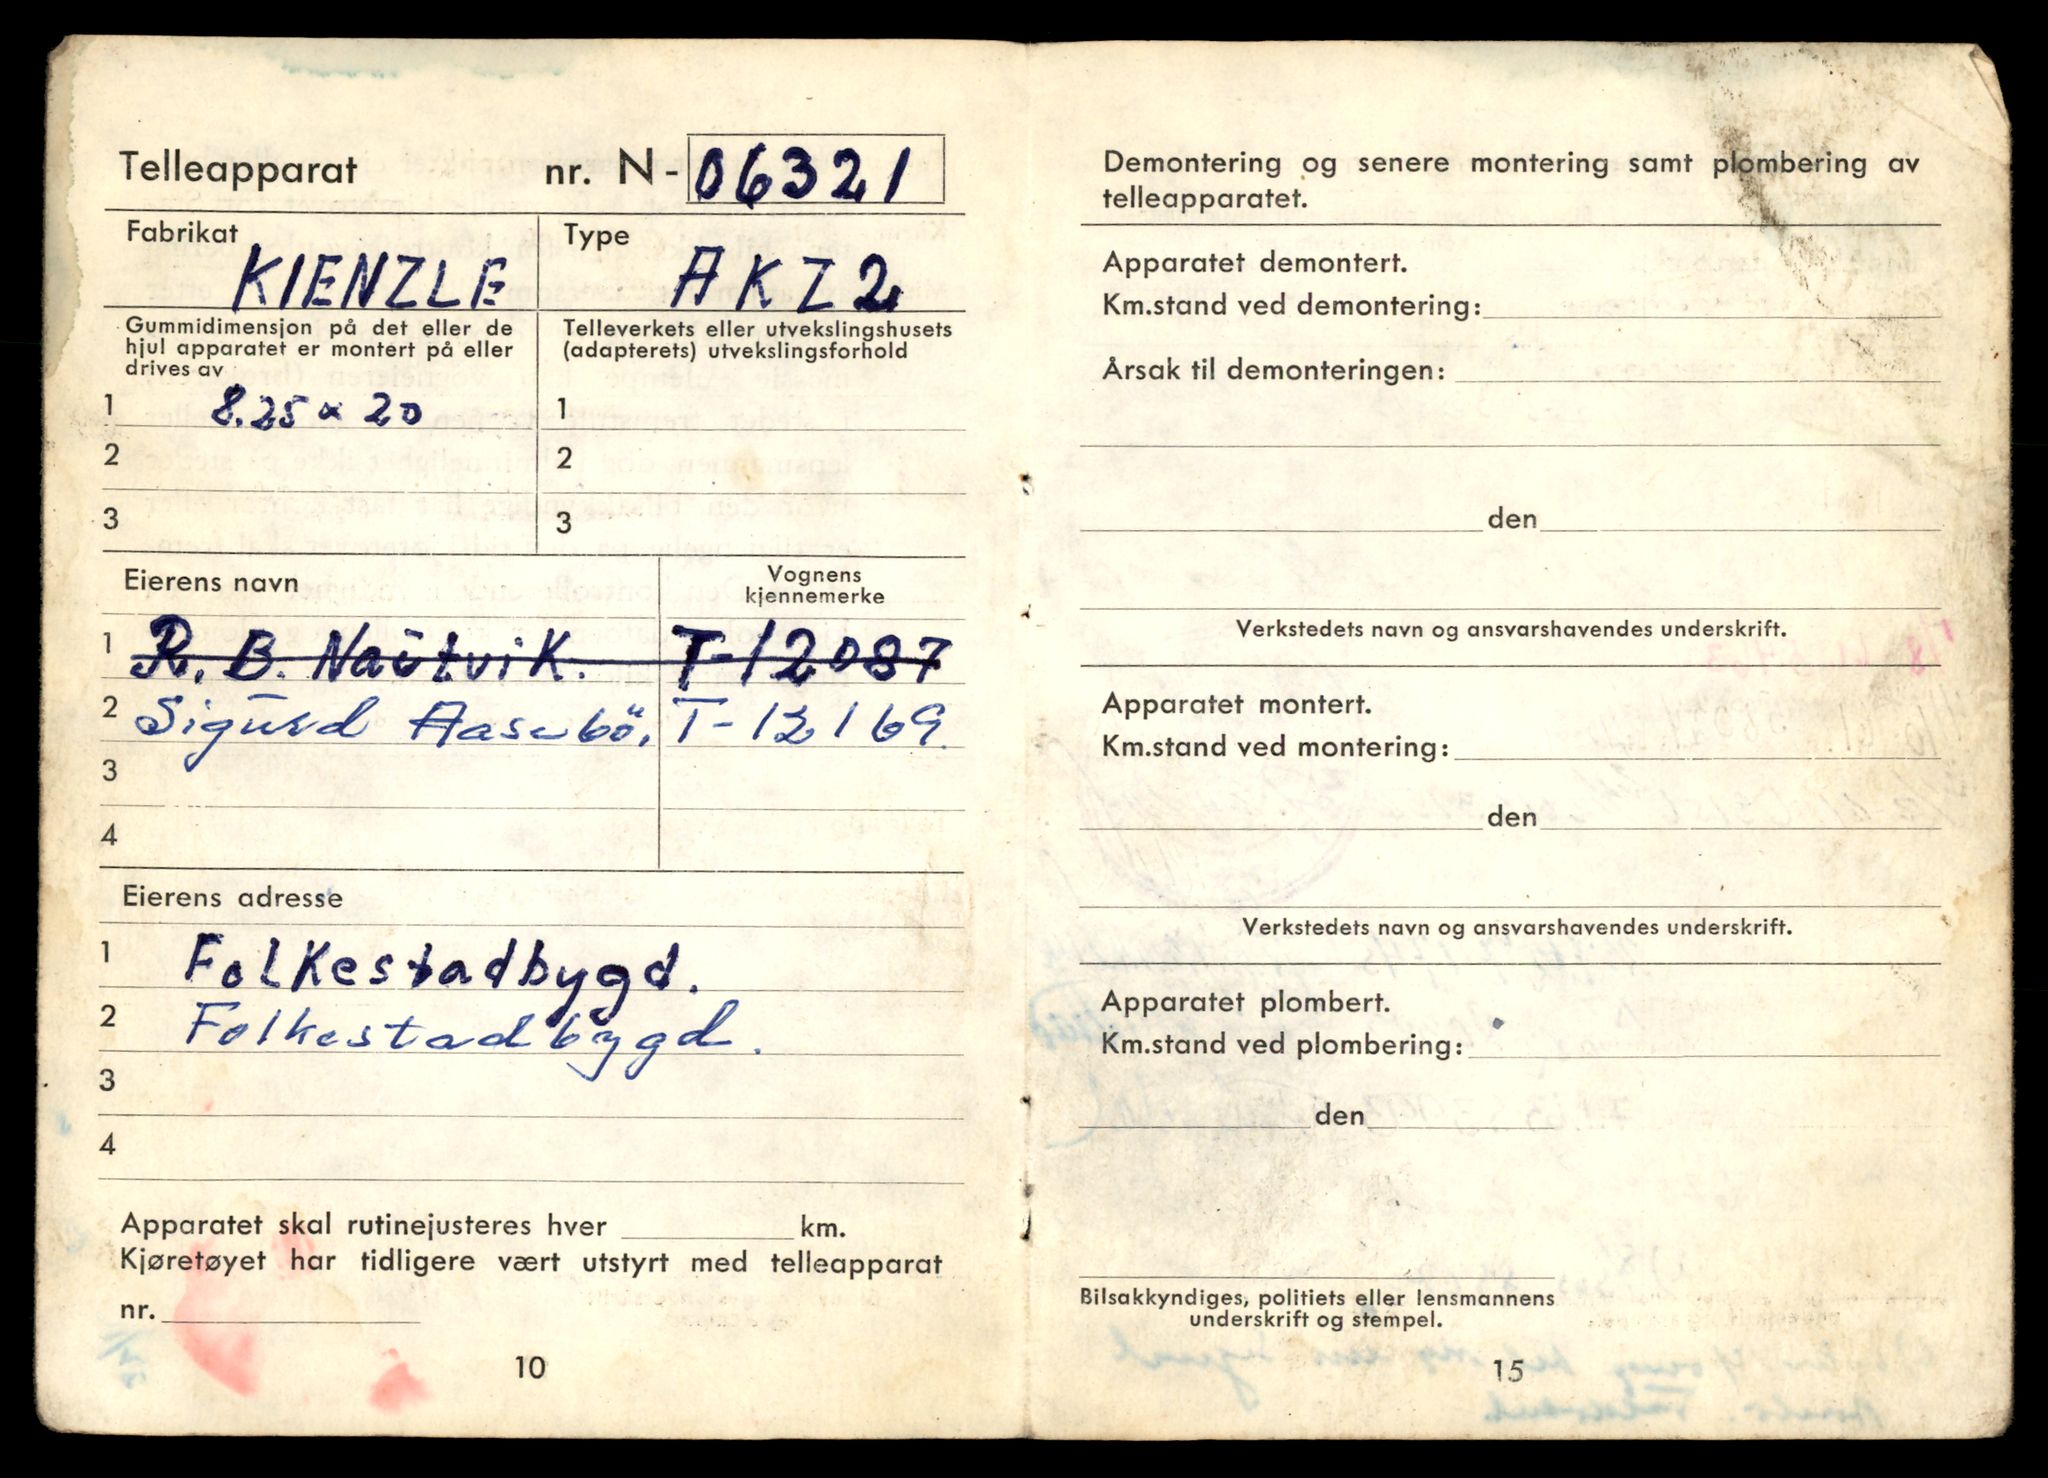 Telleapparat nr. N- 06321
Fabrikat
KIENZLE
Type
AKZ2
Gummidimensjon på det eller de
hjul apparatet er montert på eller
drives av
1 8.25 x 20
2
3
Telleverkets eller utvekslingshusets
(adapterets) utvekslingsforhold
1
2
3
Eierens navn
Vognens
kjennemerke
1 R. B. Naūtvik. T-12087
2 Sigūrd Aasebö. T-12169.
3
4
Eierens adresse
1 Folkestadbygd.
2 Folkestadbygd.
3
4
Apparatet skal rutinejusteres hver km.
Kjøretøyet har tidligere vært utstyrt med telleapparat
nr.
10
Demontering og senere montering samt plombering av
telleapparatet.
Apparatet demontert.
Km.stand ved demontering:
Årsak til demonteringen:
den
Verkstedets navn og ansvarshavendes underskrift.
Apparatet montert.
Km.stand ved montering:
den
Verkstedets navn og ansvarshavendes underskrift.
Apparatet plombert.
Km.stand ved plombering:
den
Bilsakkyndiges, politiets eller lensmannens
underskrift og stempel.
15